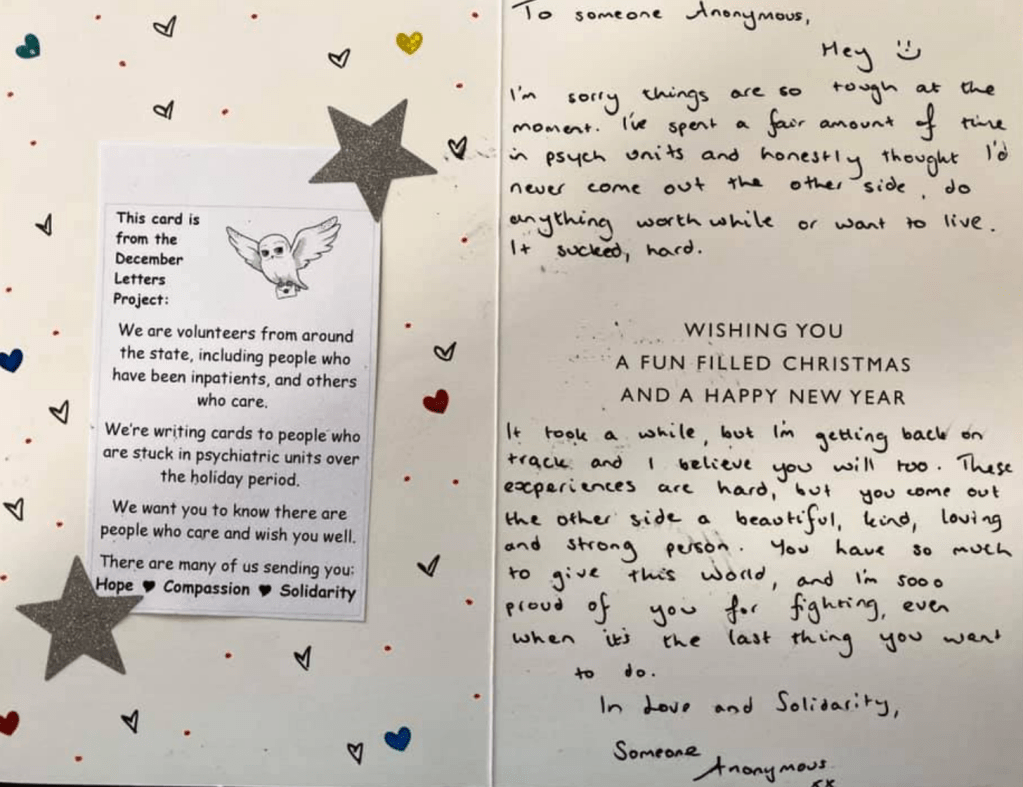 This card is
from the
December
Letters
Project:
We are volunteers from around
the state, including people who
have been inpatients, and others
who care.
We're writing cards to people who
are stuck in psychiatric units over
the holiday period.
We want you to know there are
people who care and wish you well.
There are many of us sending you:
Hope ♥ Compassion ♥ Solidarity
To someone Anonymous,
Hey :)
I'm sorry things are so tough at the
moment. I've spent a fair amount of time
in psych units and honestly thought I'd
never come out the other side, do
anything worth while or want to live.
It sucked, hard.
WISHING YOU
A FUN FILLED CHRISTMAS
AND A HAPPY NEW YEAR
It took a while, but I'm getting back on
track and I believe you will too. These
experiences are hard, but you come out
the other side a beautiful, kind, loving
and strong person. You have so much
to give this world, and I'm sooo
proud of you for fighting, even
when it's the last thing you want
to do.
In Love and Solidarity,
Someone
Anonymous
xx